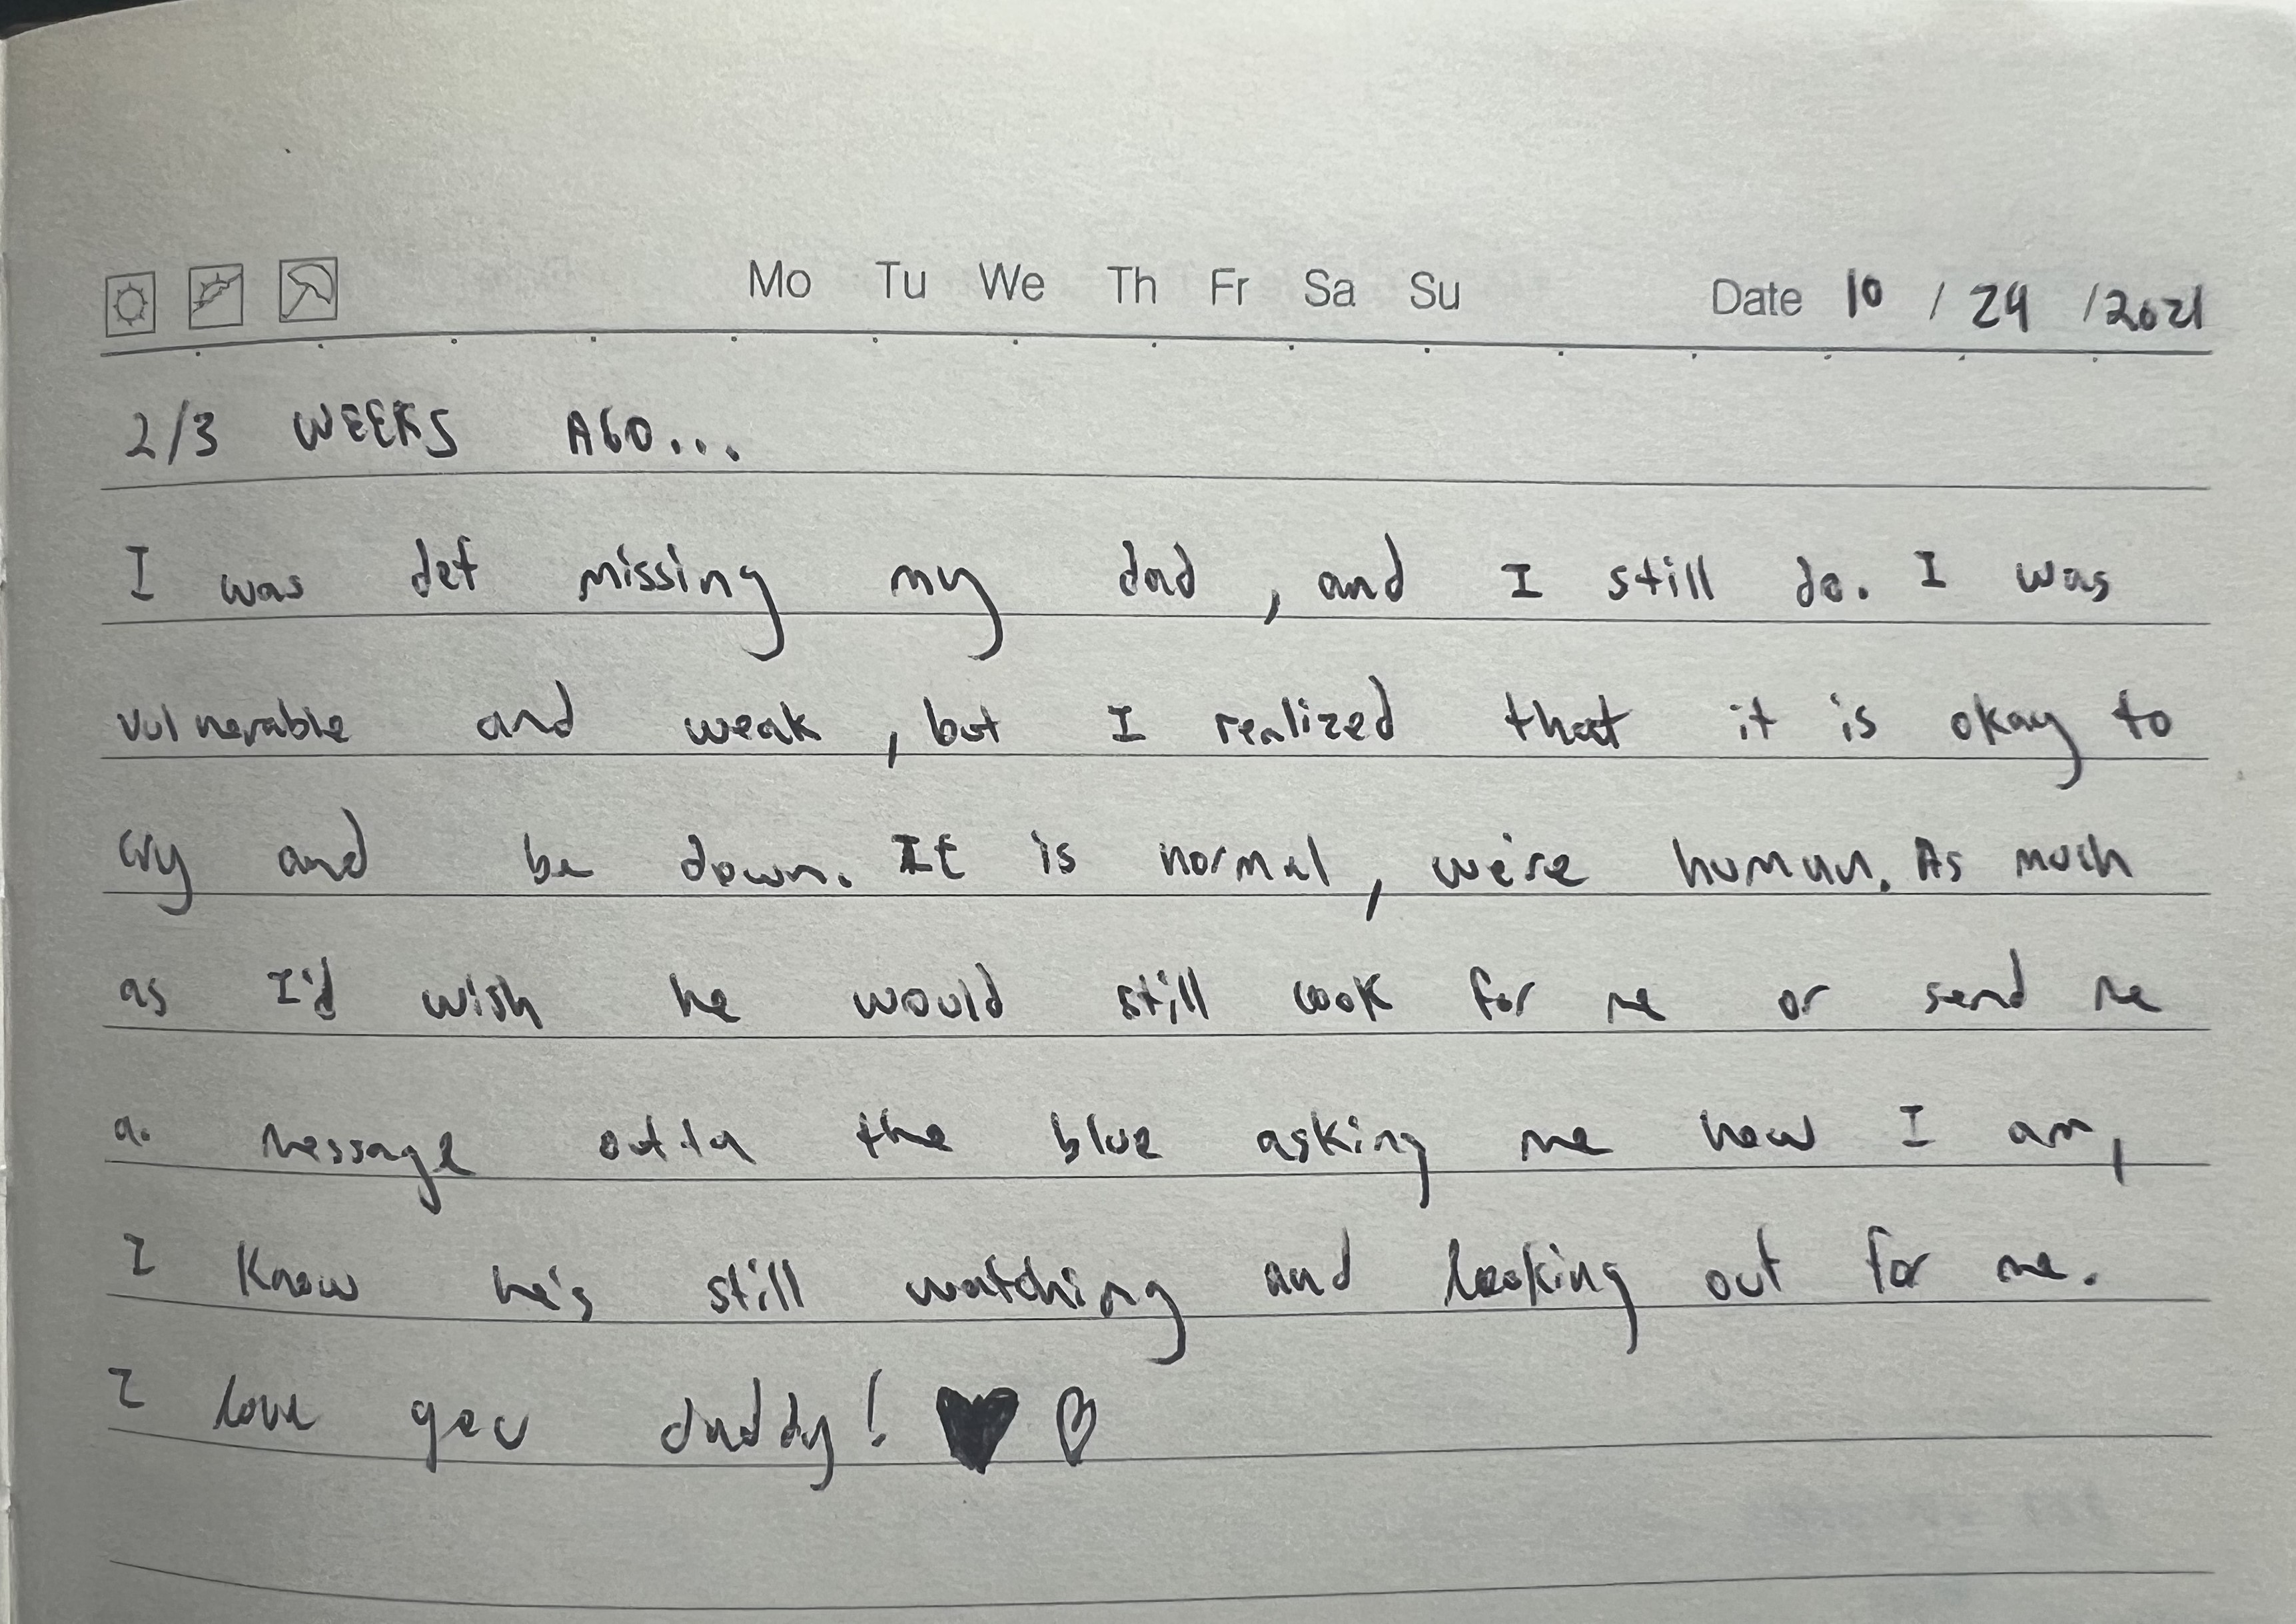 Mo Tu We Th Fr Sa Su Date 10 / 24 / 2021
2/3 WEEKS AGO...
I was def missing my dad, and I still do. I was
vulnerable and weak, but I realized that it is okay to
cry and be down. It is normal, we're human. As much
as I'd wish he would still cook for me or send me
a message outta the blue asking me how I am,
I know he's still watching and looking out for me.
I love you daddy! ♥ ♡